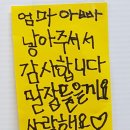 엄마 아빠
낳아주셔서
감사합니다
말잘들을게요
사랑해요♡